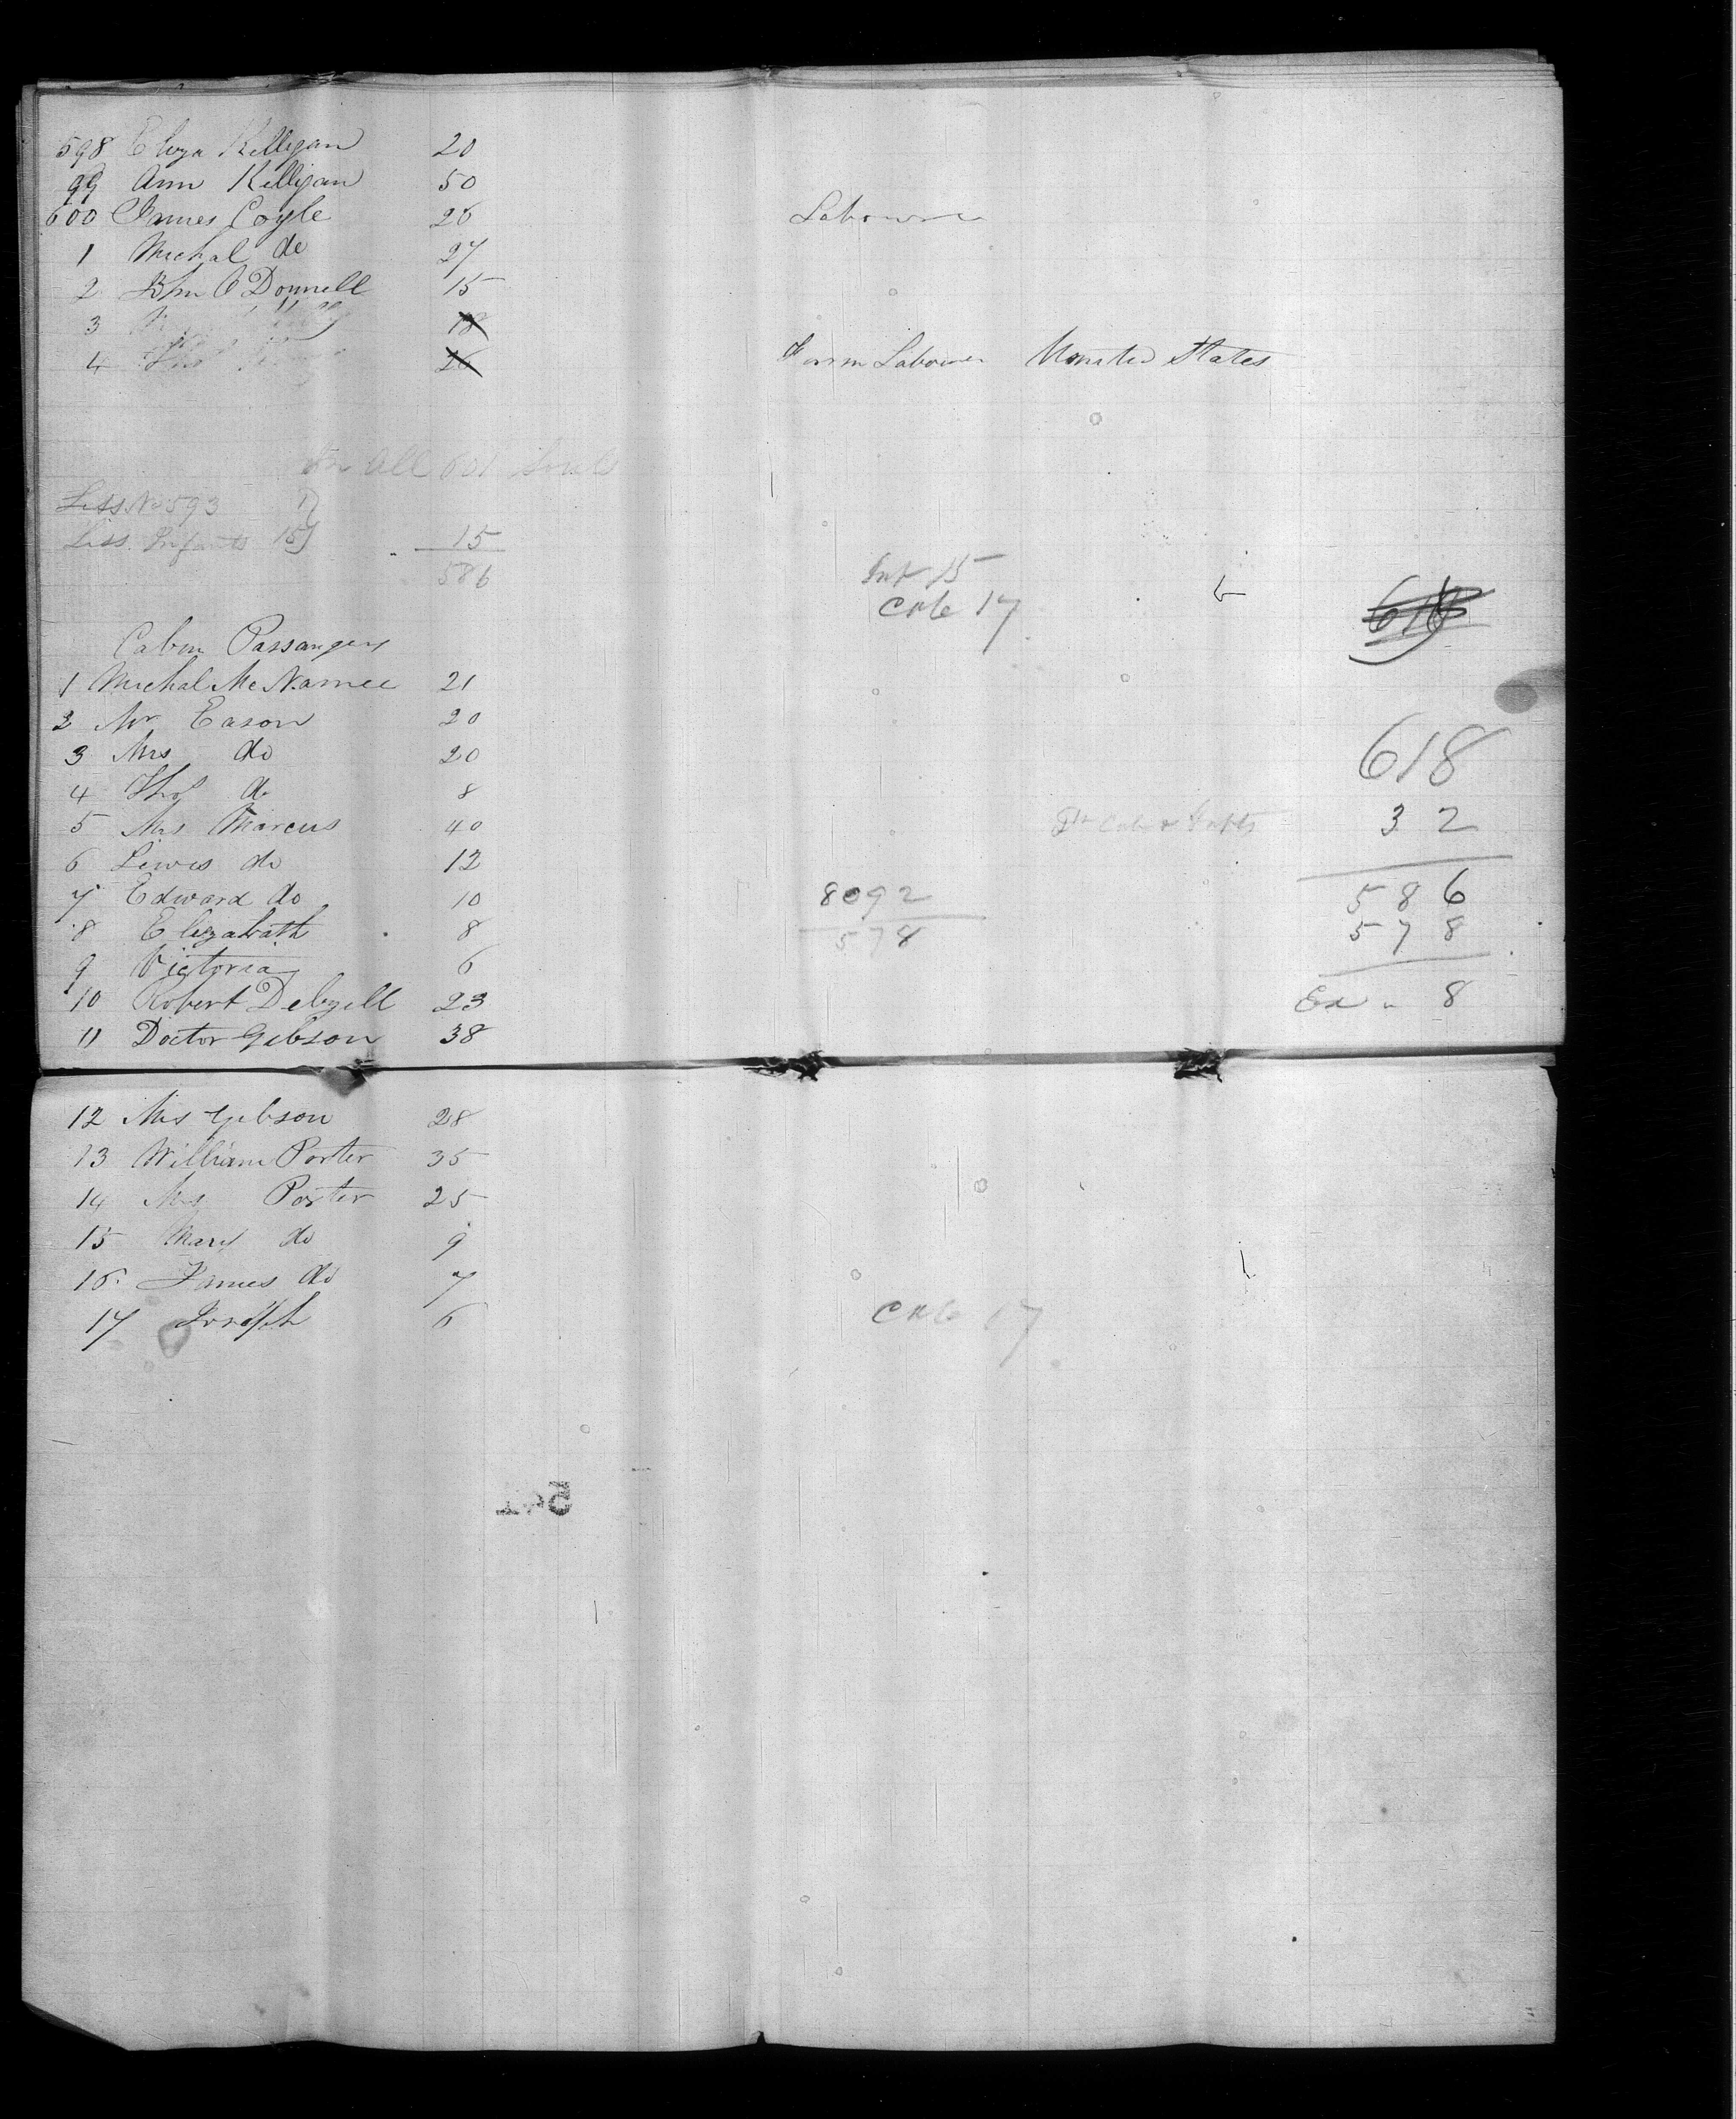 598 Eliza Killigan 20
99 Ann Killigan 50
600 James Coyle 26 Labourer
1 Michal do 27
2 O'Donnell 15
3 18
4 Thos 26 Farm Labourer Uunited States
In All 601 Souls
Less No 593 1
Less Infants 15 15
586
Inf 15
Cab 17
618
Cabin Passangers
1 Michal McNamee 21
2 Mr Eason 20
3 Mrs do 20
4 Thos do 8
5 Mrs Marcus 40
6 Lewis do 12
7 Edward do 10
8 Elizabath 8
9 Victoria 6
10 Robert 23
11 Doctor Gibson 38
618
32
586
578
Ex 8
8092
578
12 Mrs Gibson 28
13 William Porter 35
14 Mrs Porter 25
15 Mary do 9
16 James do 7
17 Joseph 6
Cab 17